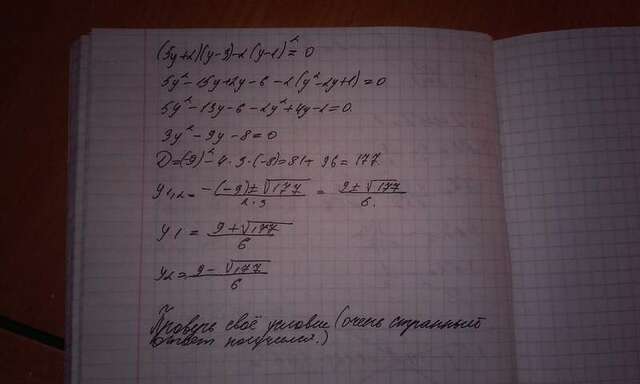 (5y+2)(y-3)-2(y-1)²=0
5y²-15y+2y-6-2(y²-2y+1)=0
5y²-13y-6-2y²+4y-2=0.
3y²-9y-8=0
D=(-9)²-4·3·(-8)=81+96=177
y₁,₂=(-(-9)±√177)/(2·3) = (9±√177)/6.
y₁=(9+√177)/6
y₂=(9-√177)/6
Проверь своё условие (очень странный
ответ получился.)